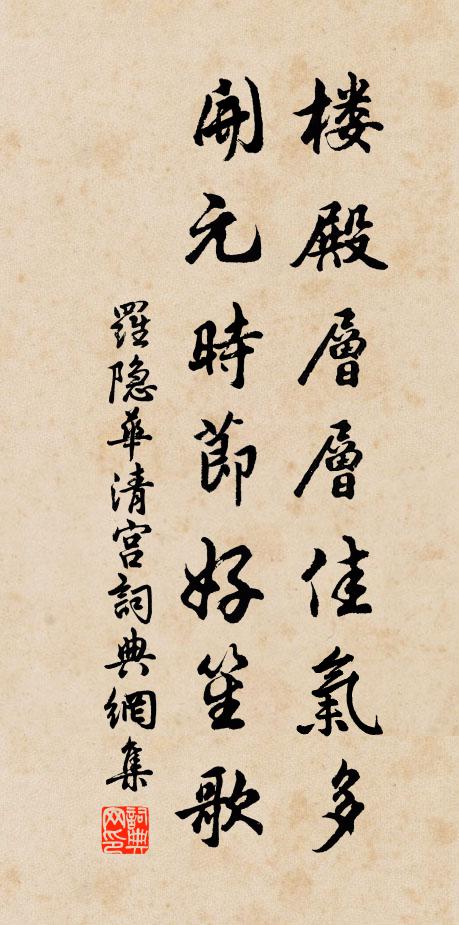 楼殿層層佳氣多
開元時節好笙歌
羅隐華清宫詞典網集
詞典网印